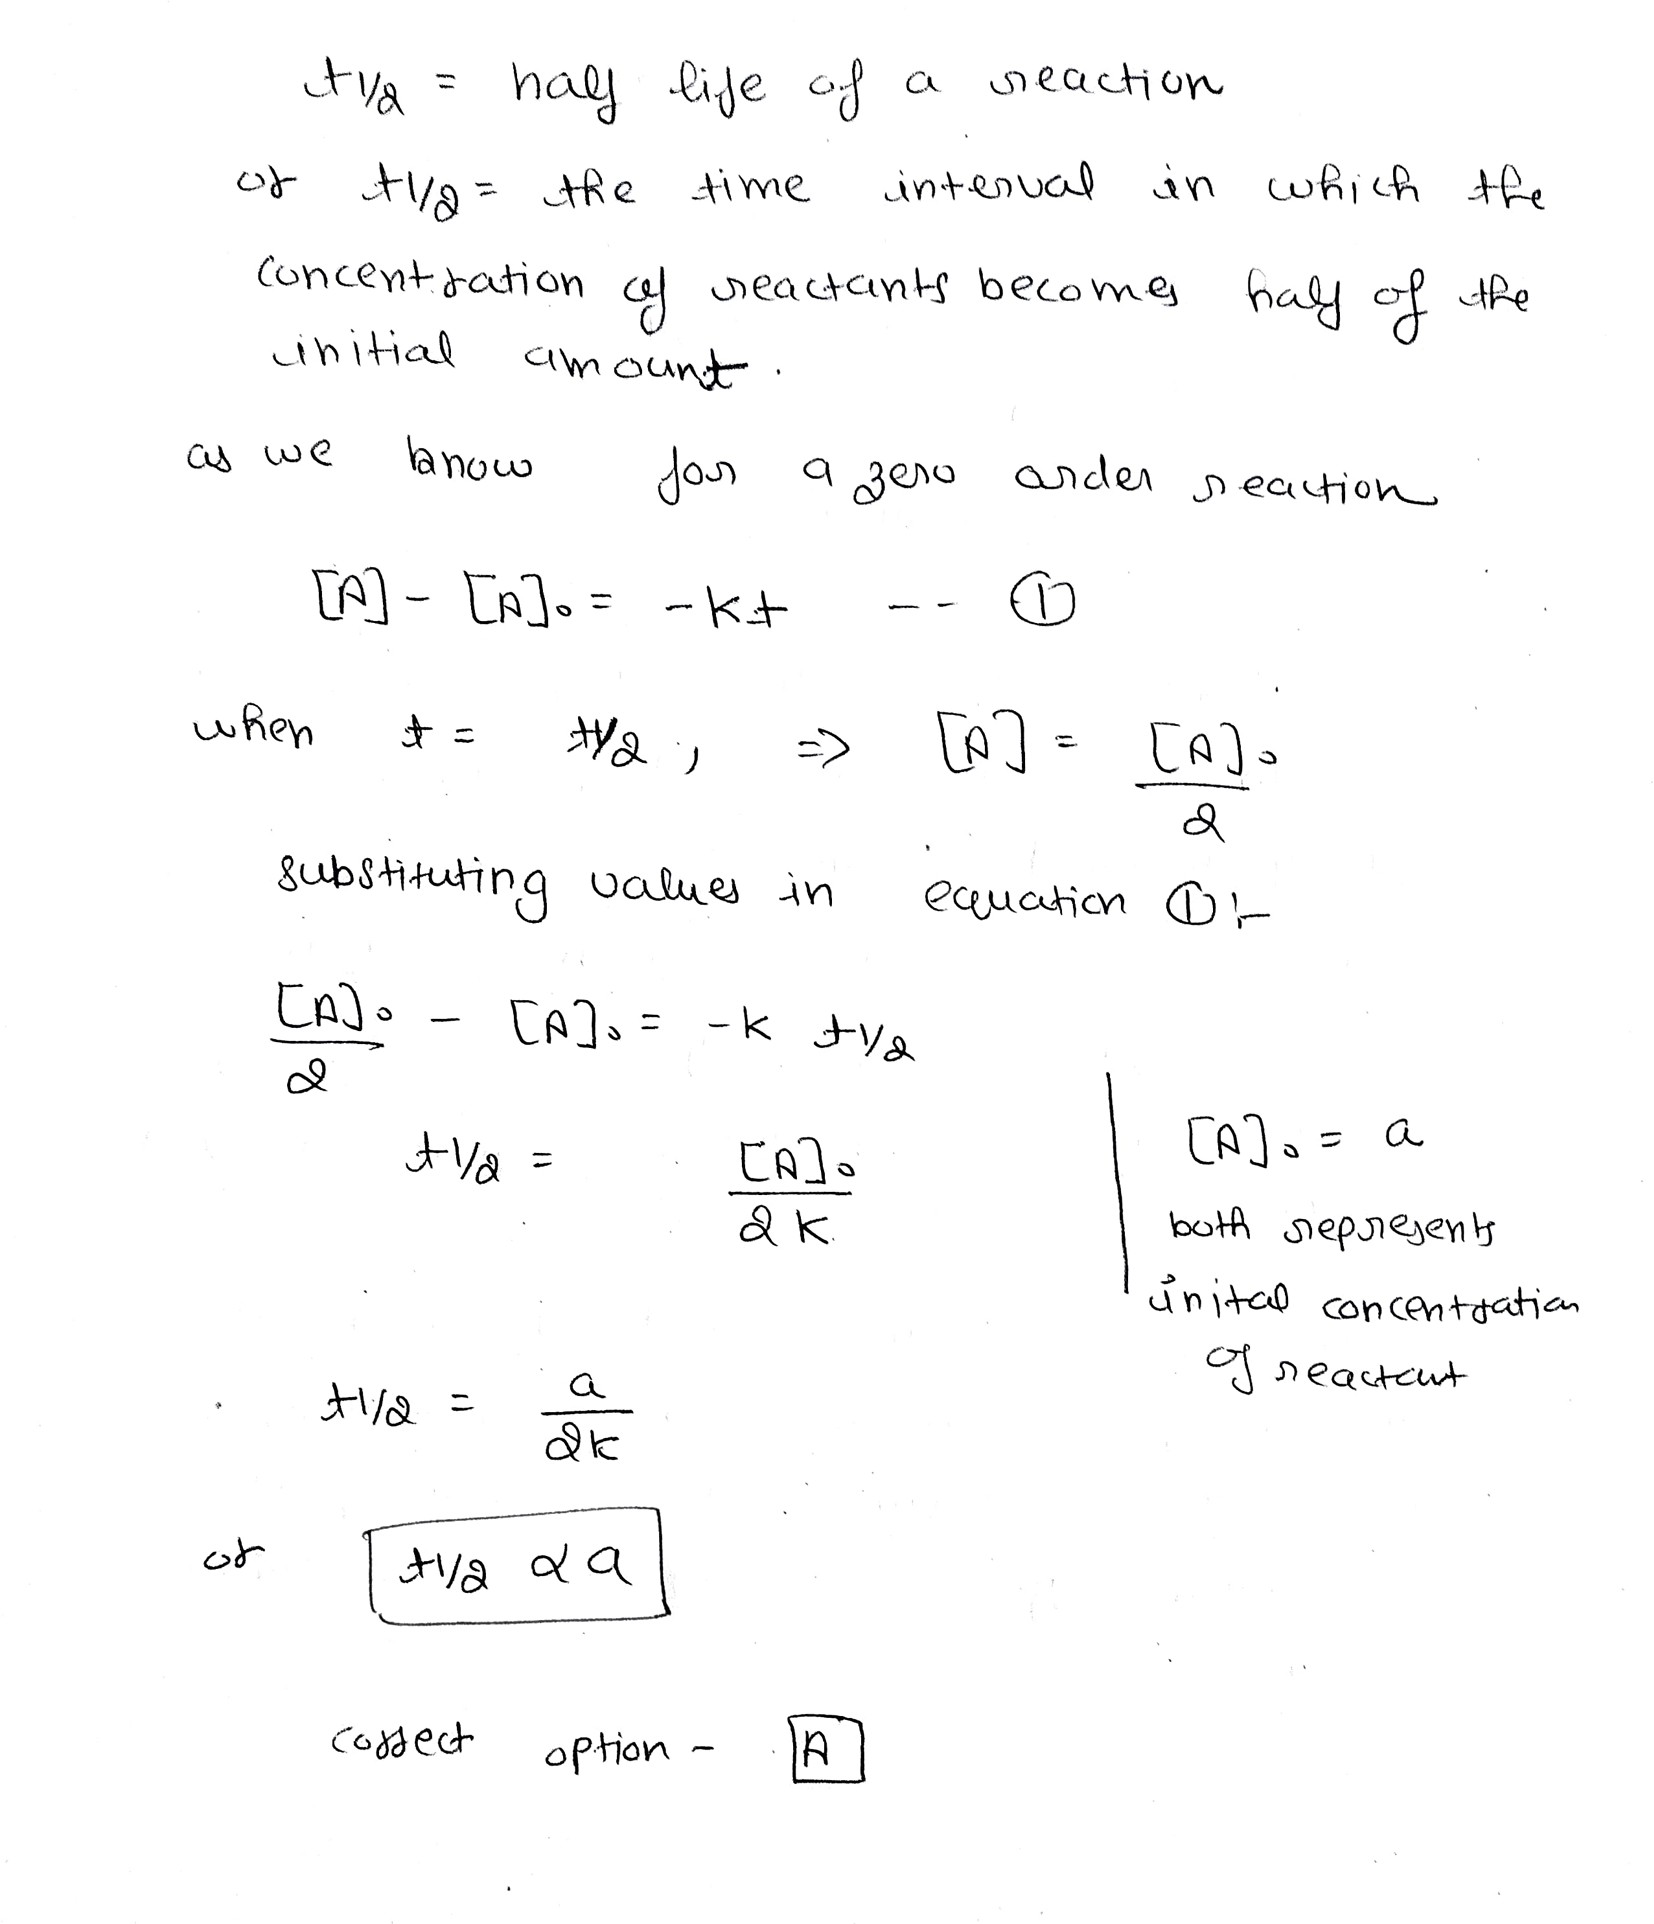 t1/2 = half life of a reaction
or t1/2 = the time interval in which the
concentration of reactants becomes half of the
initial amount.
as we know for a zero order reaction
[A] - [A]₀ = -kt -- ①
when t = t1/2 , => [A] = [A]₀/2
substituting values in equation ① :-
[A]₀/2 - [A]₀ = -k t1/2
t1/2 = [A]₀/2k
[A]₀ = a
both represents
inital concentration
of reactant
t1/2 = a/2k
or t1/2 ∝ a
correct option - A